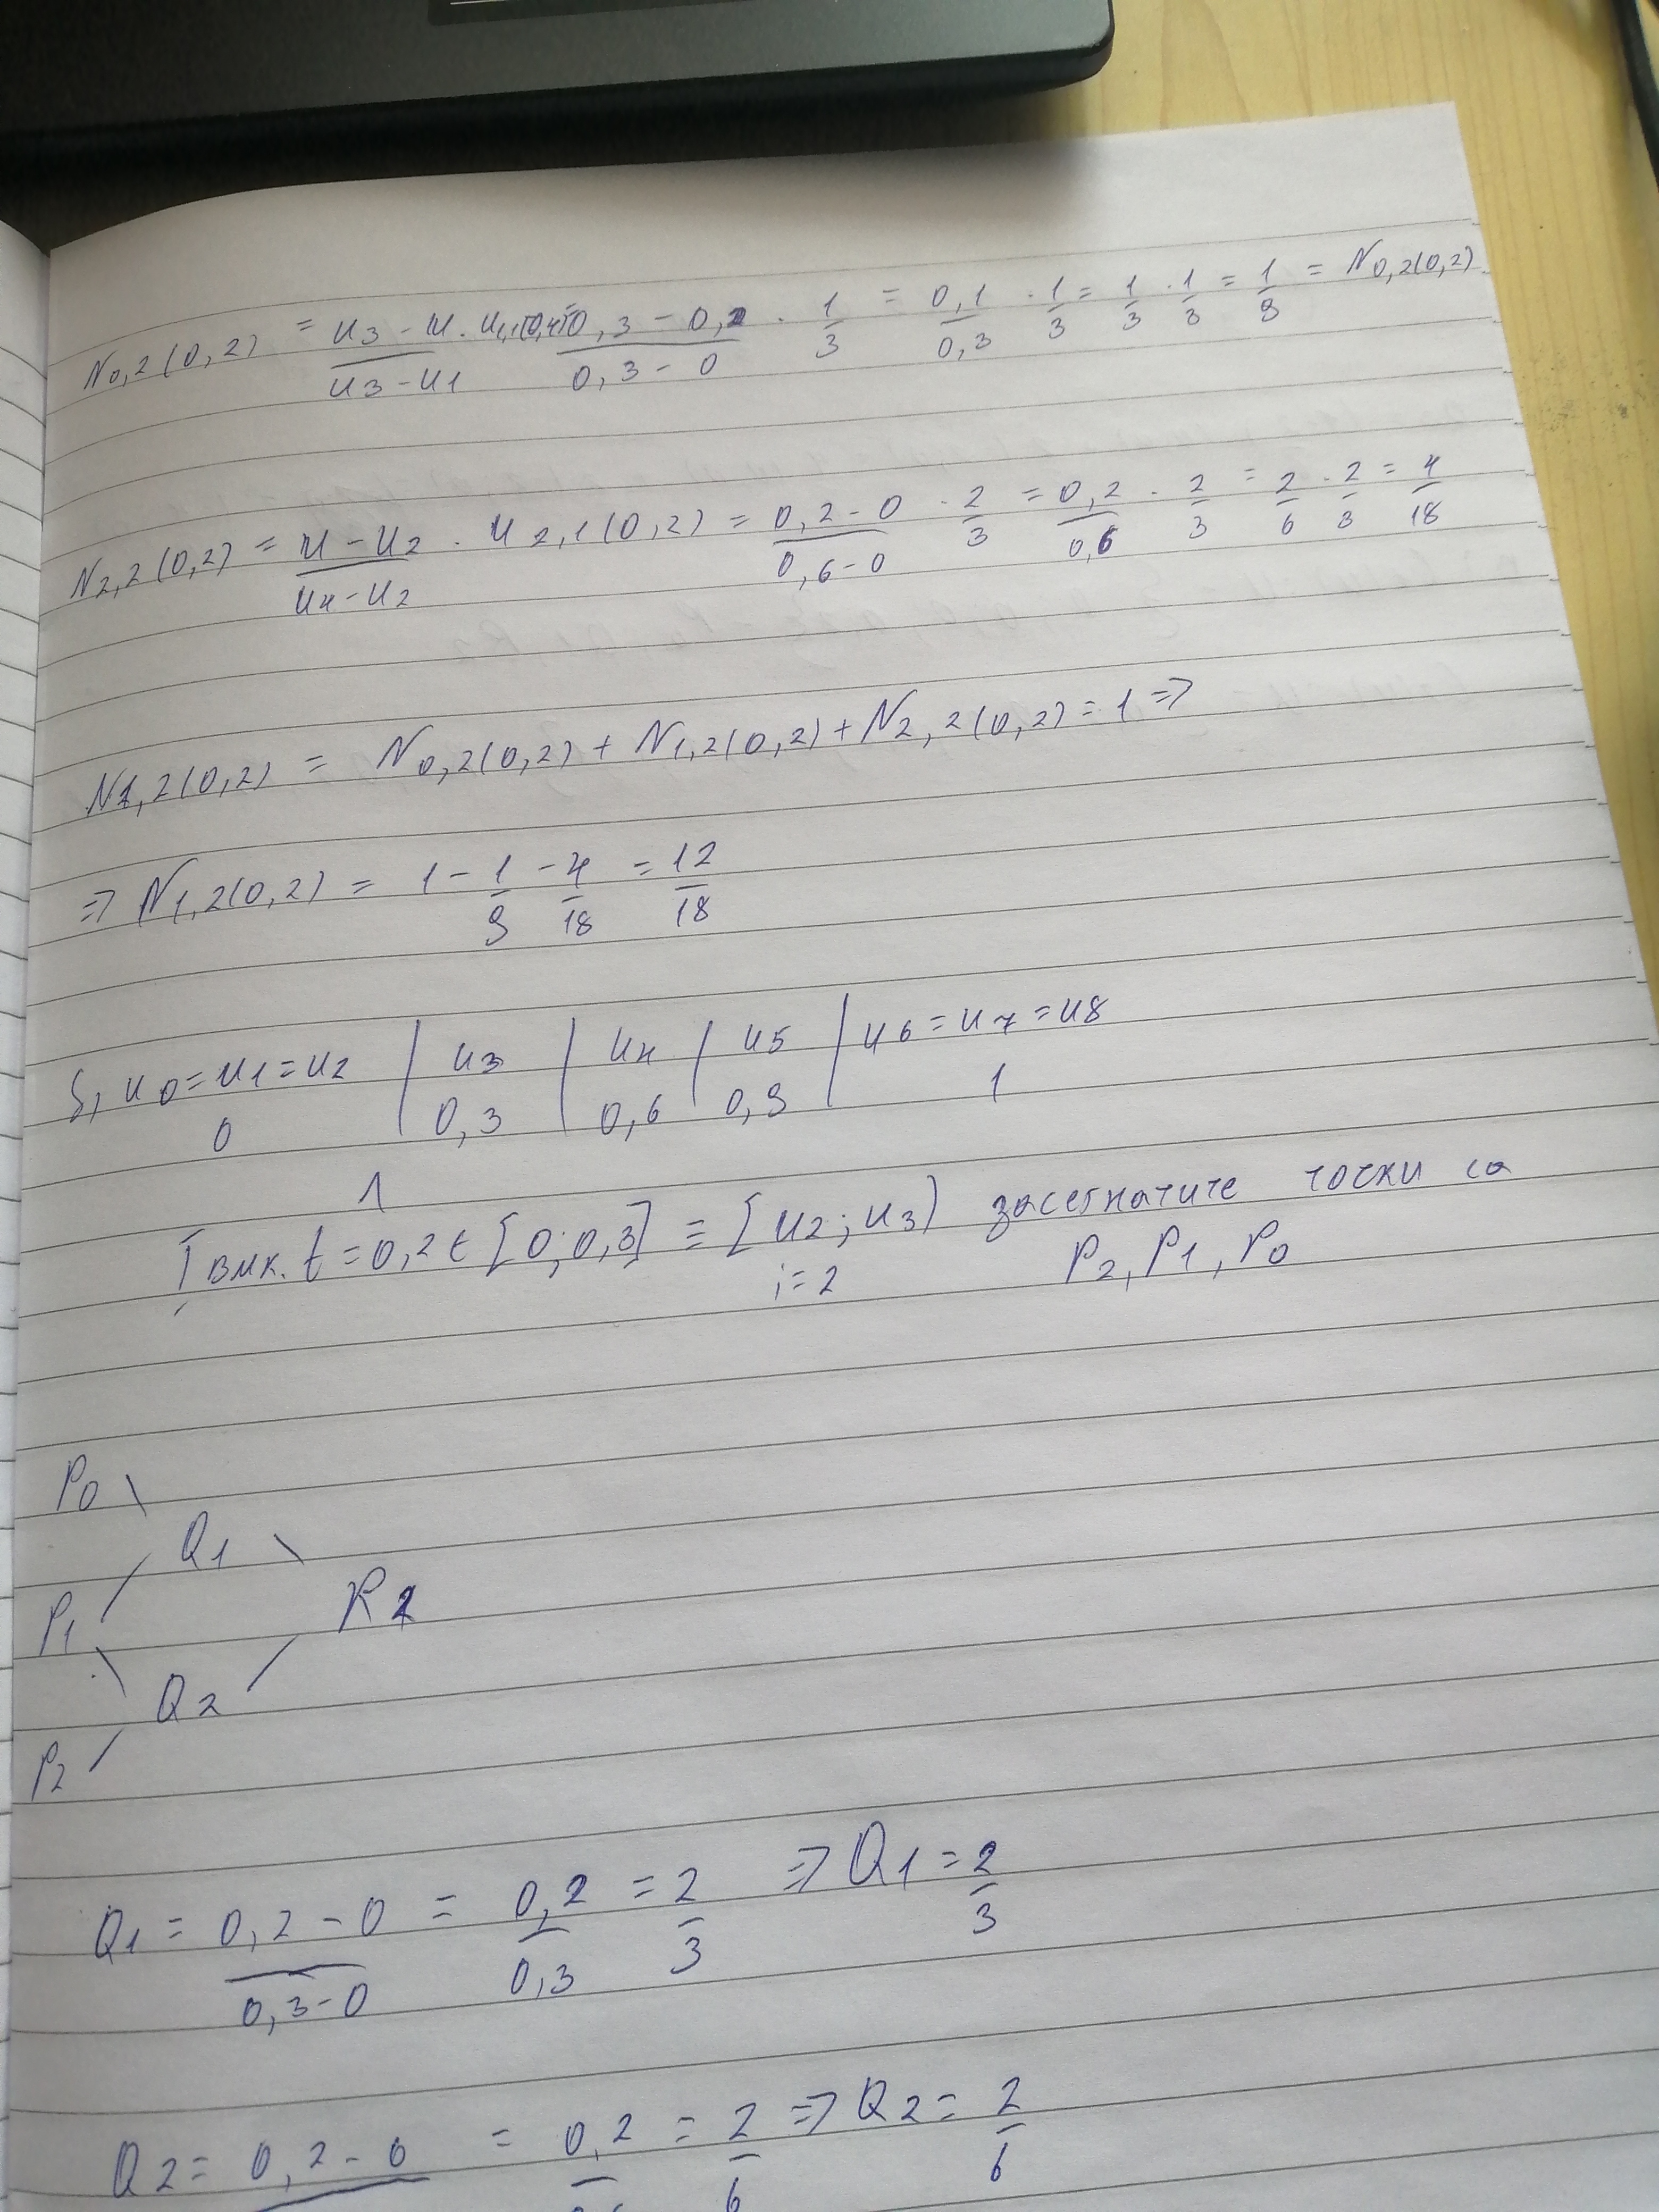 N0,2(0,2) = u3 - u / u3 - u1 · 0,3 - 0,2 / 0,3 - 0 · 1/3 = 0,1/0,3 · 1/3 = 1/3 · 1/3 = 1/9 = N0,2(0,2)
N2,2(0,2) = u - u2 / u4 - u2 · u2,1(0,2) = 0,2 - 0 / 0,6 - 0 · 2/3 = 0,2/0,6 · 2/3 = 2/6 · 2/3 = 4/18
N1,2(0,2) = N0,2(0,2) + N1,2(0,2) + N2,2(0,2) = 1 =>
=> N1,2(0,2) = 1 - 1/9 - 4/18 = 12/18
u0 = u1 = u2 | u3 | u4 | u5 | u6 = u7 = u8
0 | 0,3 | 0,6 | 0,9 | 1
1
I вмк. t = 0,2 ∈ [0; 0,3] ≡ [u2; u3) засегнатите точки са
i = 2 P2, P1, P0
P0
Q1
P1 R2
Q2
P2
Q1 = 0,2 - 0 / 0,3 - 0 = 0,2/0,3 = 2/3 => Q1 = 2/3
Q2 = 0,2 - 0 = 0,2 = 2/6 => Q2 = 2/6